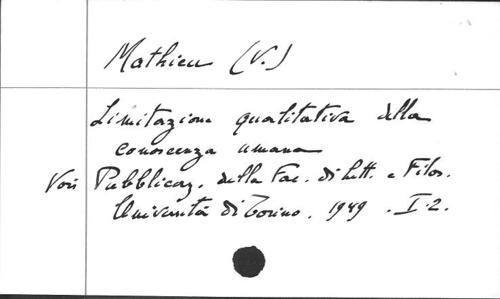 Mathieu (V.)
Limitazione qualitativa della
conoscenza umana
Voir Pubblicaz. della Fac. di Lett. e Filos.
Università di Torino. 1949. I-2.